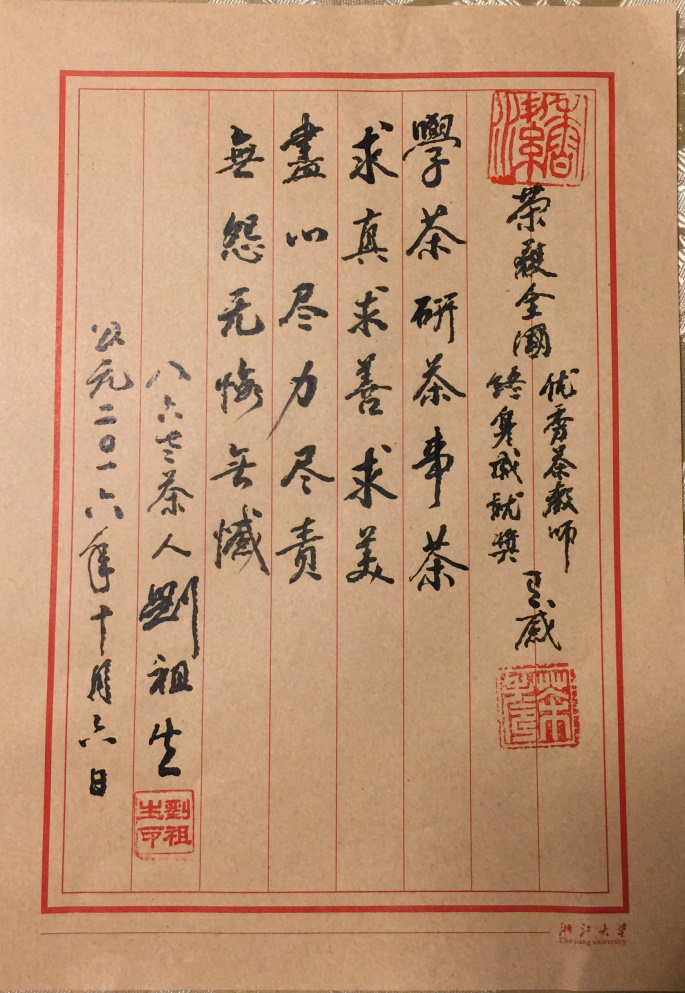 荣获全國
优秀茶教师
終身成就奬
有感
學茶研茶事茶
求真求善求美
盡心尽力尽责
無怨无悔無憾
八六老茶人劉祖生
公元二〇一六年十月六日
劉祖生印
浙江大学
Zhejiang university